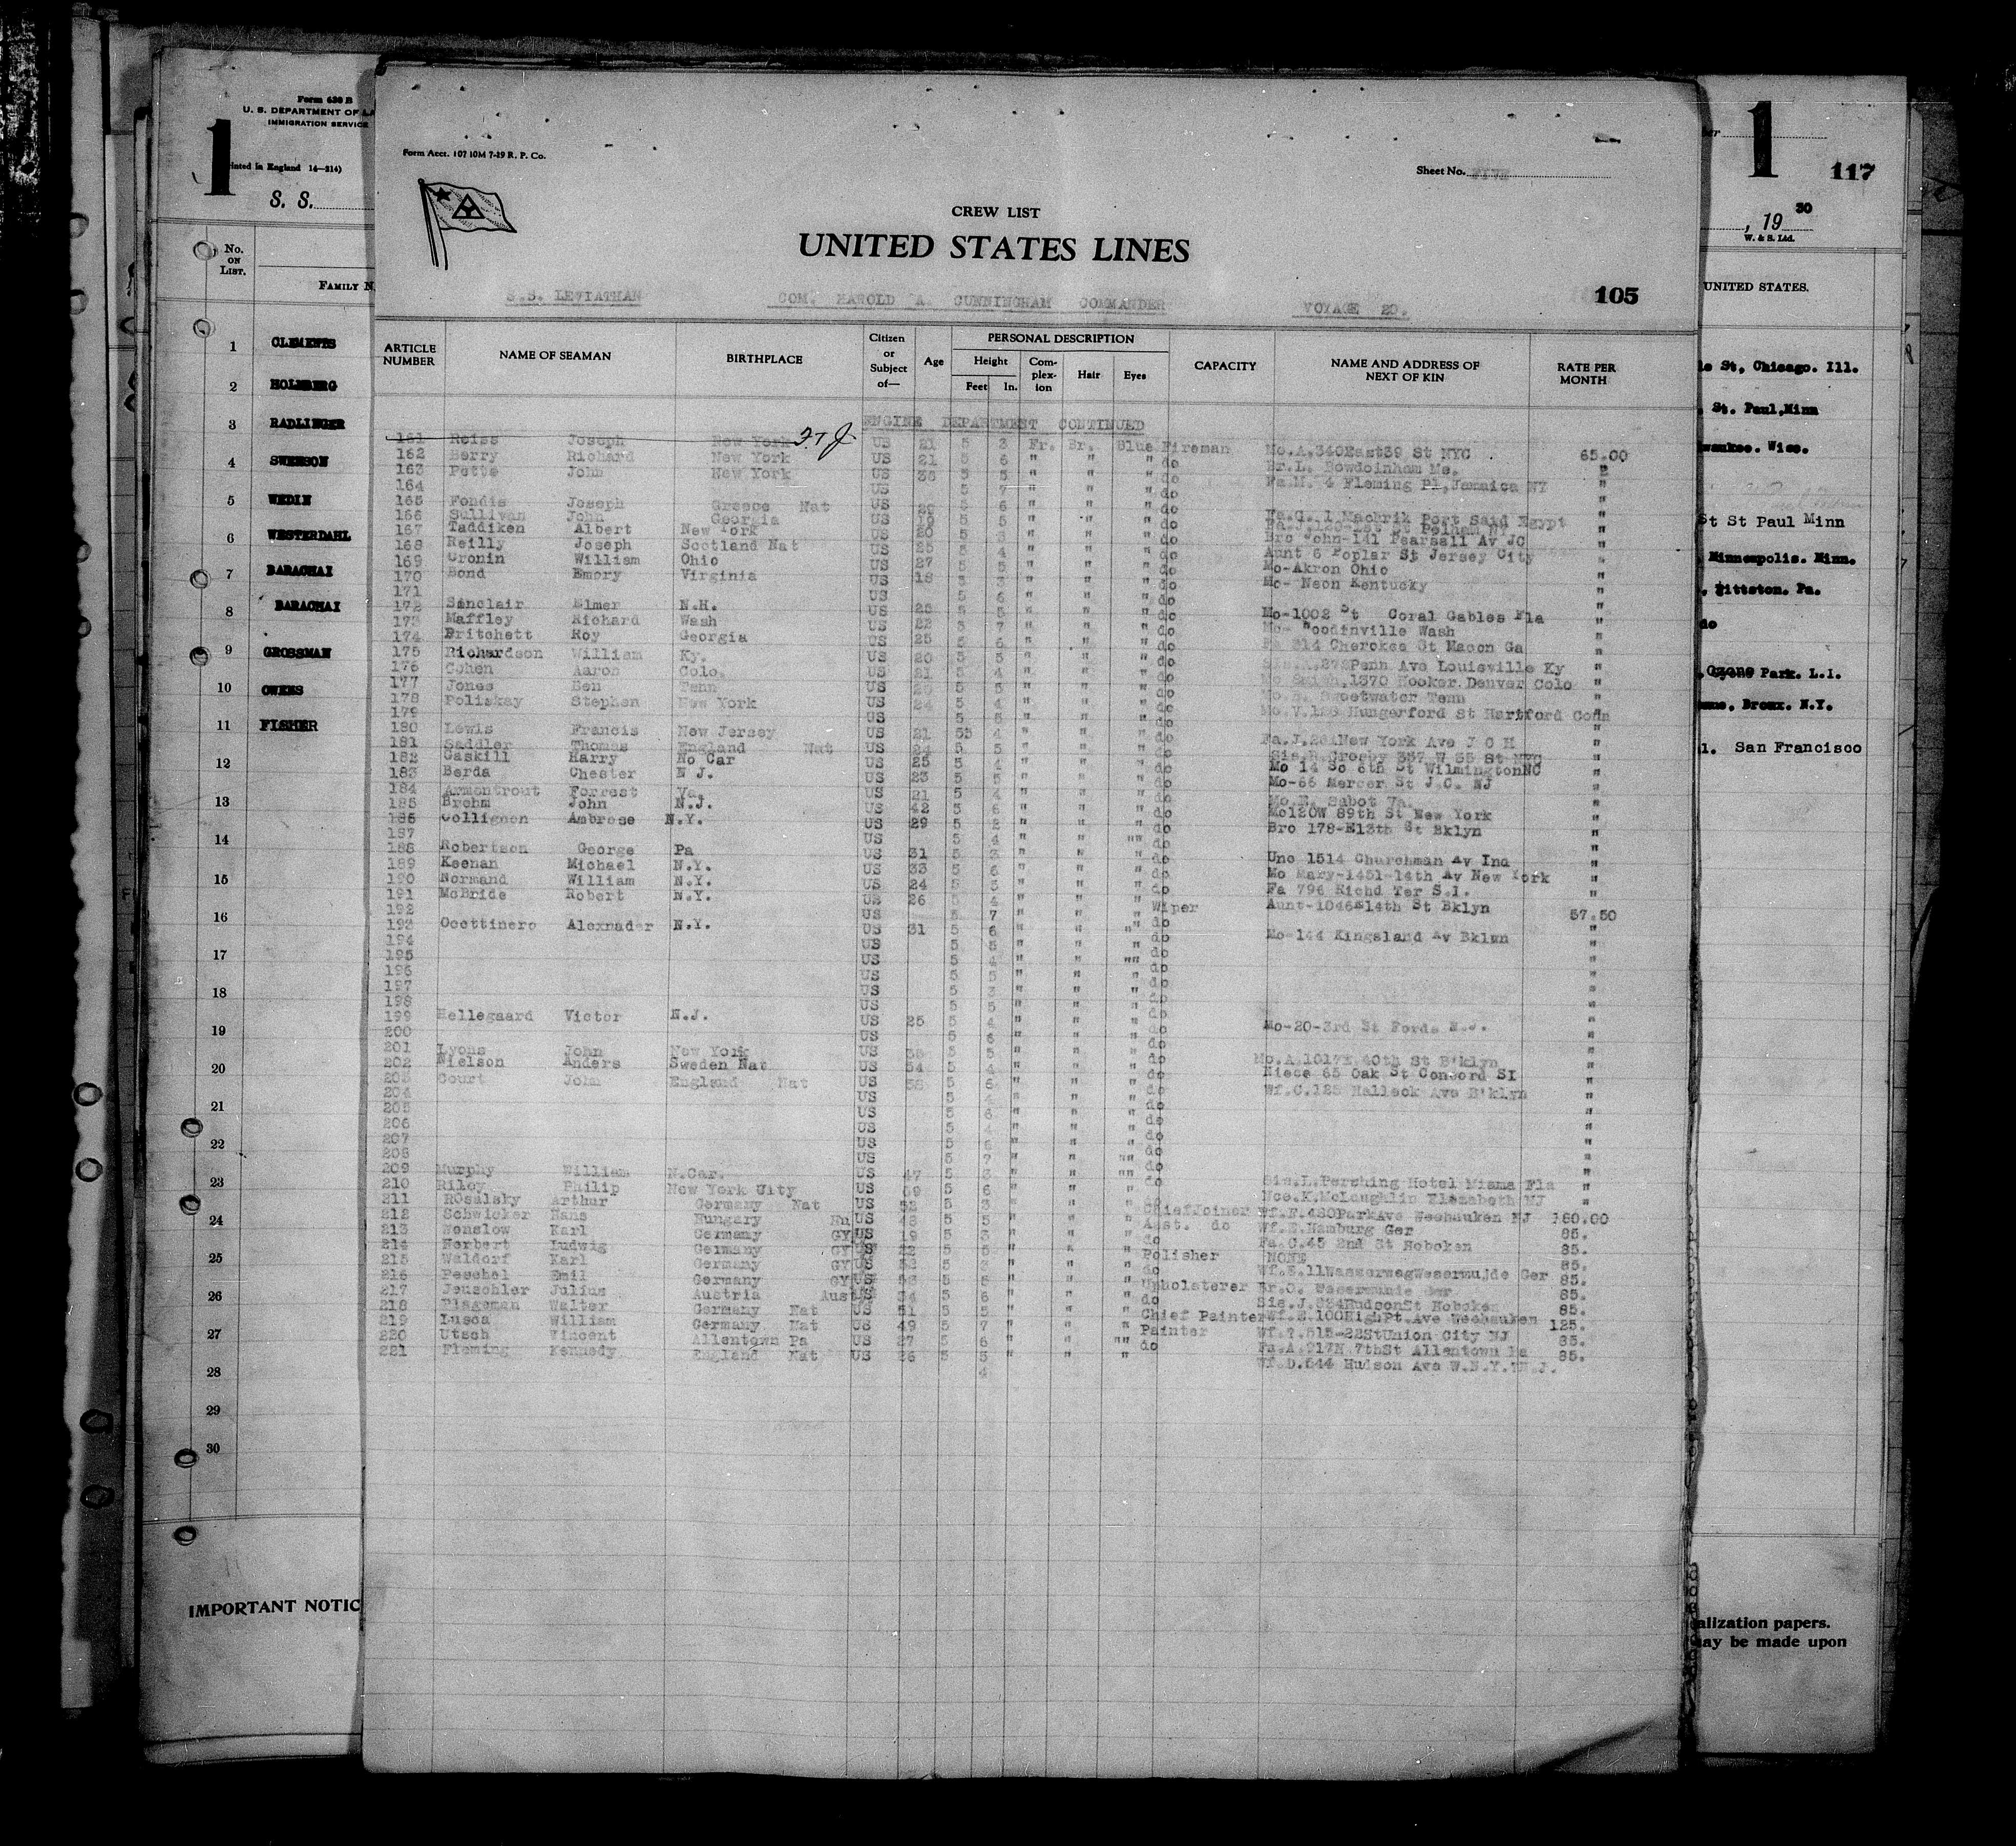 Form 630 B
U. S. DEPARTMENT OF LA
IMMIGRATION SERVICE
1
rinted in England 14—214)
S. S.
No. ON LIST.
FAMILY N
1 CLEMENTS
2 HOLMBERG
3 RADLINGER
4 SWENSON
5 WEDIN
6 WESTERDAHL
7 BARACHAI
8 BARACHAI
9 GROSSMAN
10 OWENS
11 FISHER
12
13
14
15
16
17
18
19
20
21
22
23
24
25
26
27
28
29
30
IMPORTANT NOTIC
Form Acct. 107 10M 7-29 R. P. Co.
Sheet No.
CREW LIST
UNITED STATES LINES
S.S. LEVIATHAN COM. HAROLD A. CUNNINGHAM COMMANDER VOYAGE 20. 105
ARTICLE NUMBER NAME OF SEAMAN BIRTHPLACE Citizen or Subject of— Age PERSONAL DESCRIPTION Height Feet In. Complexion Hair Eyes CAPACITY NAME AND ADDRESS OF NEXT OF KIN RATE PER MONTH
ENGINE DEPARTMENT CONTINUED
161 Reiss Joseph New York US 21 5 3 Fr. Br. Blue Fireman Mo.A.340East39 St NYC 65.00
162 Berry Richard New York US 21 5 6 " " " do Br.L. Bowdoinham Me. "
163 Potts John New York US 38 5 5 " " " do Fa.M. 4 Fleming Pl,Jamaica NY "
164 US 5 7 " " " do "
165 Fondis Joseph Greece Nat US 5 6 " " " do Fa.G. 1 Machrik Port Said Egypt "
166 Sullivan John Georgia US 19 5 5 " " " do Pelham "
167 Taddiken Albert New York US 20 5 3 " " " do Bro John-141 Pearsall Av JC "
168 Reilly Joseph Scotland Nat US 25 5 4 " " " do Aunt 6 Poplar St Jersey City "
169 Cronin William Ohio US 27 5 5 " " " do Mo-Akron Ohio "
170 Bond Emory Virginia US 18 5 3 " " " do Mo- Neon Kentucky "
171 US 5 6 " " " do "
172 Sinclair Elmer N.H. US 25 5 5 " " " do Mo-1002 St Coral Gables Fla "
173 Maffley Richard Wash US 22 5 7 " " " do Mo- Woodinville Wash "
174 Pritchett Roy Georgia US 25 5 6 " " " do Fa 214 Cherokee St Macon Ga "
175 Richardson William Ky. US 20 5 5 " " " do Penn Ave Louisville Ky "
176 Cohen Aaron Colo. US 21 5 4 " " " do Mo Smith,1370 Hooker Denver Colo "
177 Jones Ben Tenn US 5 5 " " " do Sweetwater Tenn "
178 Poliskay Stephen New York US 24 5 4 " " " do Mo.V.186 Hungerford St Hartford Conn "
179 US 5 5 " " " do "
180 Lewis Francis New Jersey US 21 55 4 " " " do Fa.J.261New York Ave J C H "
181 Saddler Thomas England Nat US 24 5 5 " " " do Sis.H.Crosby 357 W 35 St NYC "
182 Gaskill Harry No Car US 25 5 4 " " " do Mo 14 So 6th St WilmingtonNC "
183 Berda Chester N J. US 23 5 5 " " " do Mo-66 Mercer St J.C. NJ "
184 Armontrout Forrest Va. US 21 5 4 " " " do Mo.E. Sabot Va. "
185 Brehm John N.J. US 42 5 6 " " " do Mo120W 89th St New York "
186 Collignon Ambrose N.Y. US 29 5 2 " " " do Bro 178-E13th St Bklyn "
187 US 5 4 " " "" do "
188 Robertson George Pa US 31 5 3 " " " do Unc 1514 Churchman Av Ind "
189 Keenan Michael N.Y. US 33 5 6 " " " do Mo Mary-1451-14th Av New York "
190 Normand William N.Y. US 24 5 3 " " " do Fa 796 Richd Ter S.I. "
191 McBride Robert N.Y. US 26 5 4 " " " Wiper Aunt-1046 14th St Bklyn 57.50
192 US 5 7 " " " do "
193 Ocettinero Alexnader N.Y. US 31 5 6 " " "" do Mo-144 Kingsland Av Bklwn "
194 US 5 5 " " " do "
195 US 5 4 " " "" do "
196 US 5 5 " " " do "
197 US 5 3 " " " do "
198 US 5 5 " " " do "
199 Hellegaard Victor N.J. US 25 5 4 " " " do Mo-20-3rd St Fords N.J. "
200 US 5 6 " " " do "
201 Lyons John New York US 5 5 " " " do Mo.A.1017E 40th St B'klyn "
202 Nielson Anders Sweden Nat US 54 5 4 " " " do Niece 65 Oak St Concord SI "
203 Court John England Nat US 38 5 6 " " " do Wf.C.125 Halleck Ave B'klyn "
204 US 5 4 " " " do "
205 US 5 6 " " " do "
206 US 5 4 " " " do "
207 US 5 " " " do "
208 US 5 7 " " "" do "
209 Murphy William N.Car. US 47 5 3 " " "" do Sis.L.Pershing Hotel Miama Fla "
210 Riley Philip New York City US 5 6 " " " Nce.K.McLaughlin Elezabeth NJ "
211 ROsalsky Arthur Germany Nat US 52 5 3 " " " ChiefJoiner Wf.F.480ParkAve Weehauken NJ 160.00
212 Schwicker Hans Hungary Hn US 43 5 5 " " " Asst. do Wf.E.Hamburg Ger 85.
213 Wenslow Karl Germany GY US 19 5 3 " " " do Fa.C.45 2nd St Hoboken 85.
214 Herbert Ludwig Germany GY US 22 5 5 " " " Polisher NONE 85.
215 Waldorf Karl Germany GY US 5 3 " " " do Wf.E.11WasserwegWesermujde Ger 85.
216 Peschel Emil Germany GY US 5 5 " " " Upholsterer Br.O. Wesermunde Ger 85.
217 Jeuschler Julius Austria Aust US 34 5 6 " " " do Sis.J. HudsonSt Hoboken 85.
218 Plageman Walter Germany Nat US 51 5 5 " " " Chief Painter Wf.E.100HighPt.Ave Weehauken 125.
219 Lusca William Germany Nat US 49 5 7 " " " Painter Wf.T.515-22StUnion City NJ 85.
220 Utsch Vincent Allentown Pa US 27 5 6 " " "" do Fa.A.217N 7thSt Allentown Pa 85.
221 Fleming Kennedy England Nat US 26 5 5 " " " Wf.D.544 Hudson Ave W.N.Y.N.J.
4
1
117
, 19 30
W. & S. Ltd.
UNITED STATES.
le St, Chicago. Ill.
. St. Paul,Minn
waukee. Wisc.
St St Paul Minn
Minneapolis. Minn.
, Pittston. Pa.
do
, Ozone Park. L.I.
enue, Bronx. N.Y.
l. San Francisco
alization papers.
may be made upon